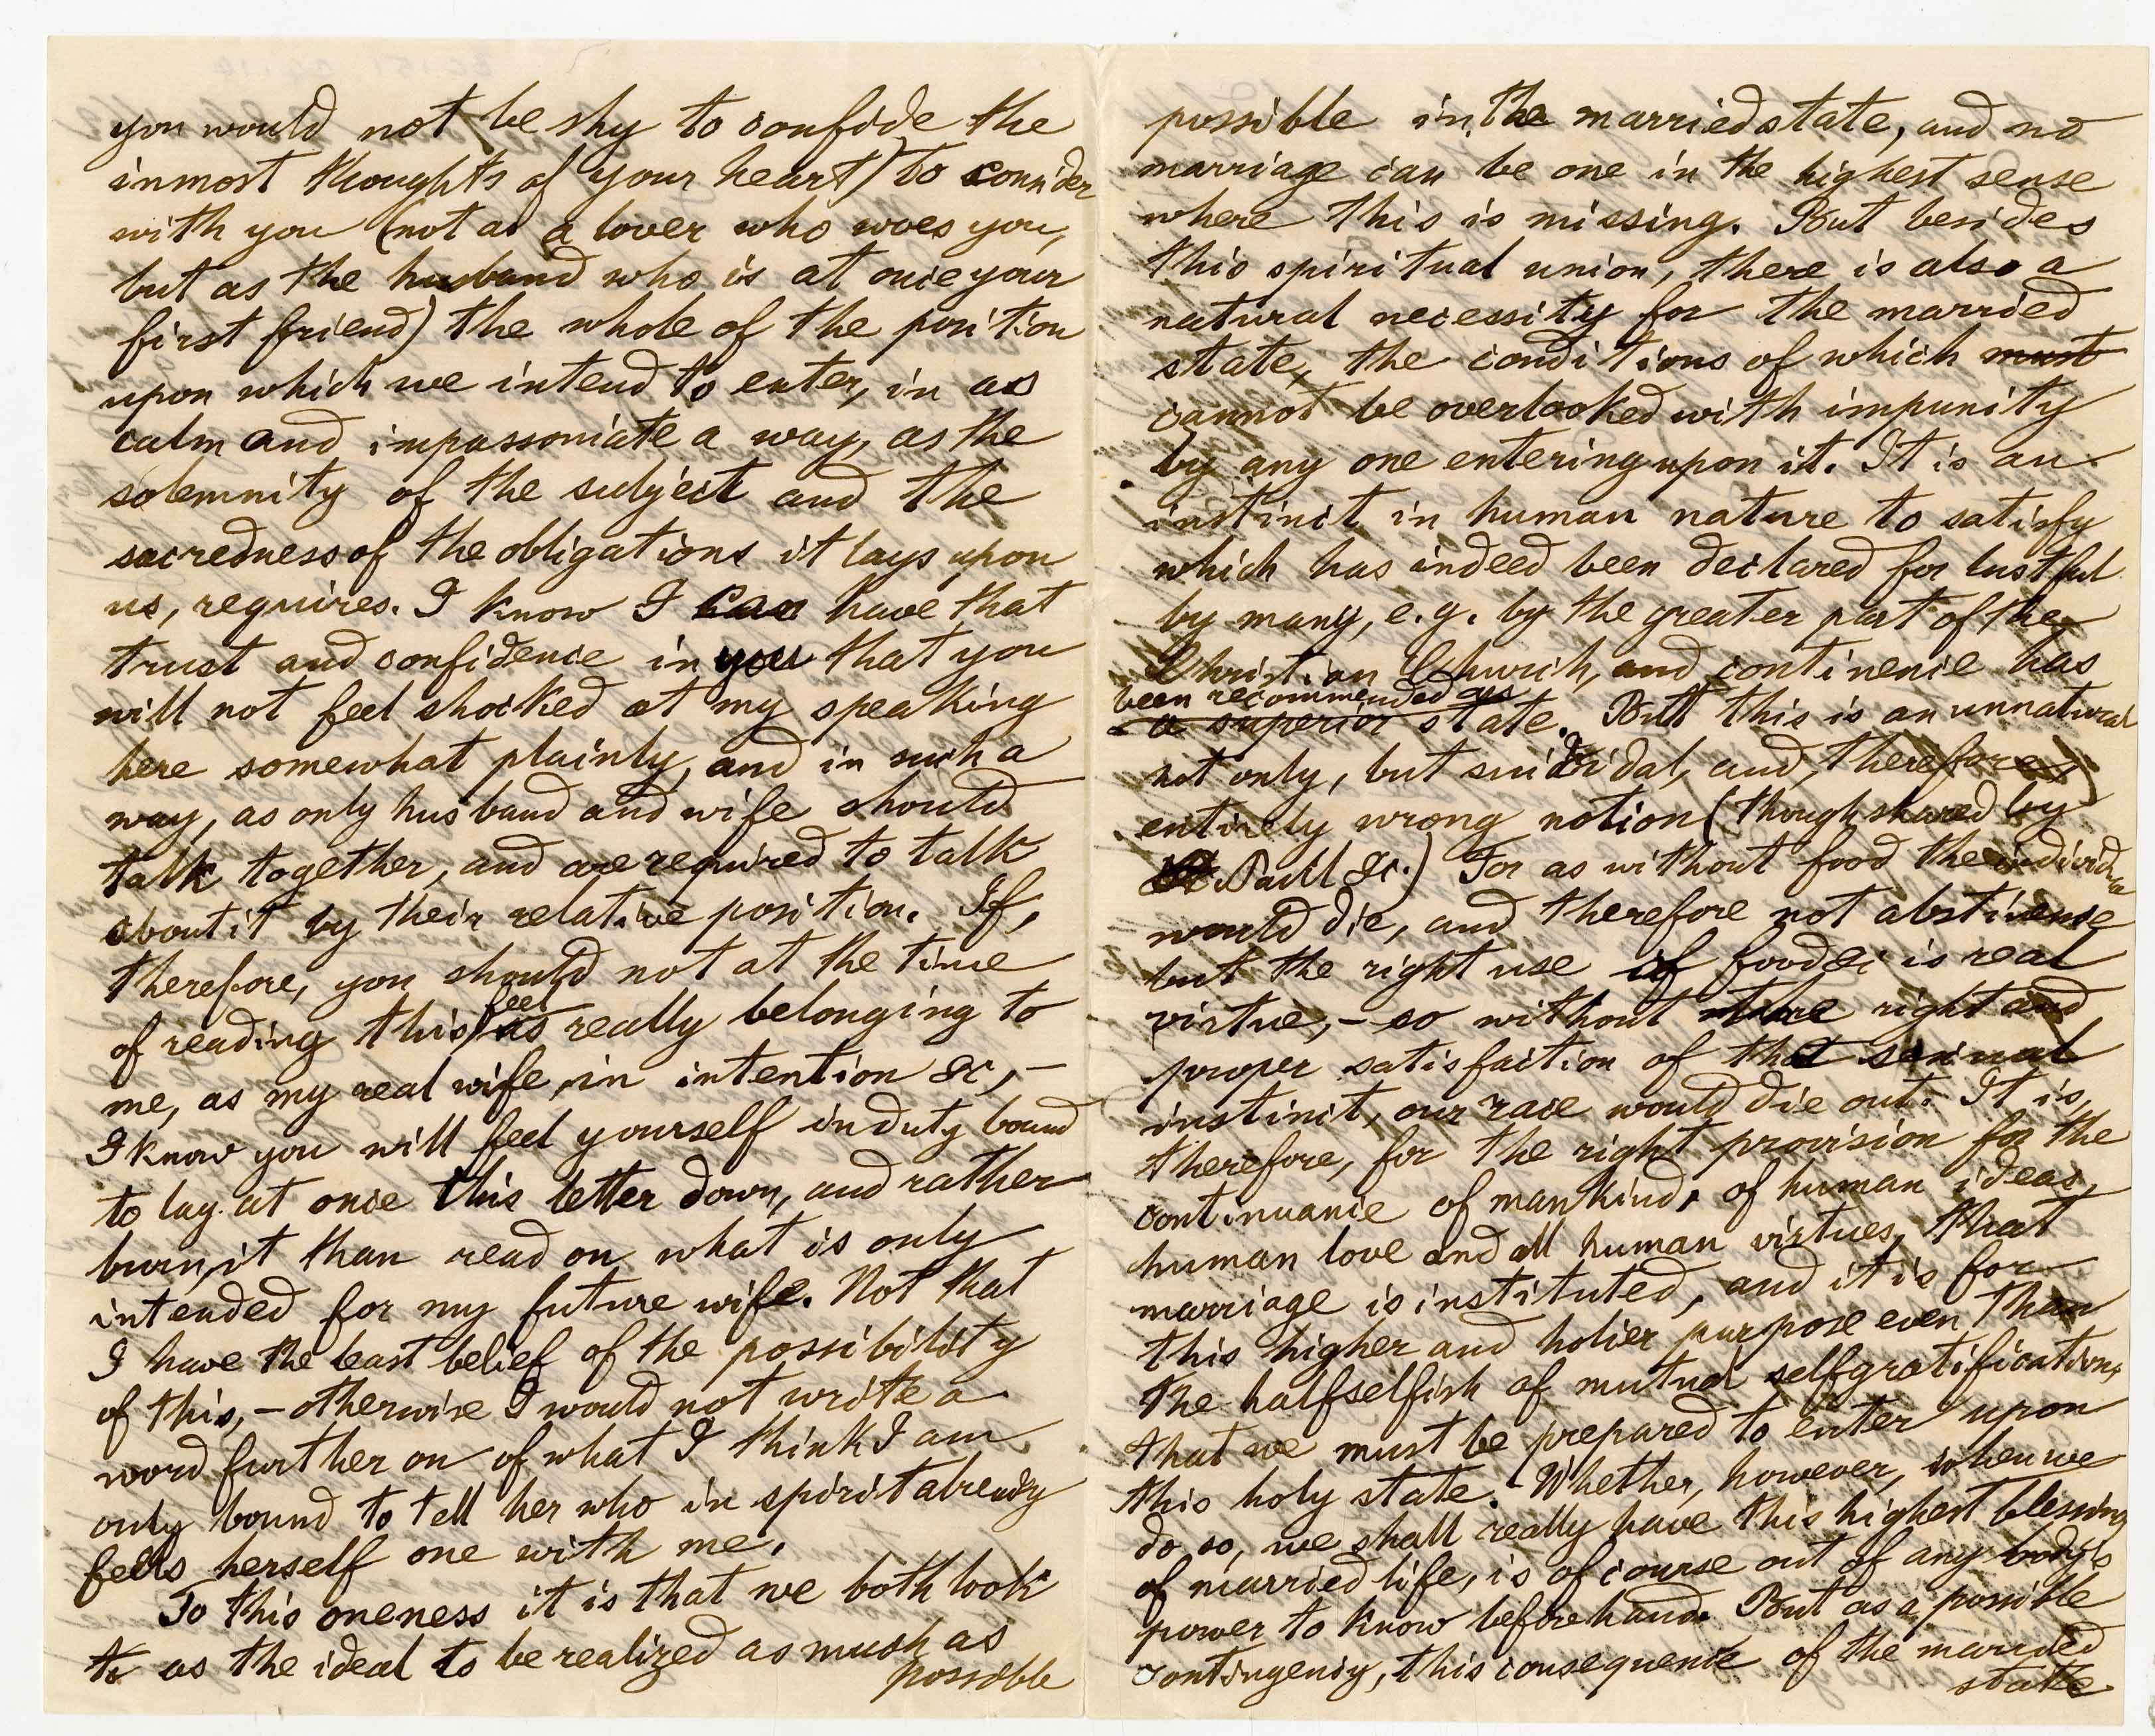 you would not be shy to confide the
inmost thoughts of your heart) to consider
with you (not as a lover who woes you,
but as the husband who is at once your
first friend) the whole of the position
upon which we intend to enter, in as
calm and impassoniate a way, as the
solemnity of the subject and the
sacredness of the obligations it lays upon
us, requires. I know I can have that
trust and confidence in you that you
will not feel shocked at my speaking
here somewhat plainly, and in such a
way, as only husband and wife should
talk together, and are required to talk
about it by their relative position. If,
therefore, you should not at the time
of reading this feel as really belonging to
me, as my real wife, in intention &c, –
I know you will feel yourself in duty bound
to lay at once this letter down, and rather
burn it than read on what is only
intended for my future wife. Not that
I have the least belief of the possibility
of this, – otherwise I would not write a
word further on of what I think I am
only bound to tell her who in spirit already
feels herself one with me.
To this oneness it is that we both look
to as the ideal to be realized as much as
possible
possible in the married state, and no
marriage can be one in the highest sense
where this is missing. But besides
this spiritual union, there is also a
natural necessity for the married
state, the conditions of which must
cannot be overlooked with impunity
by any one entering upon it. It is an
instinct in human nature to satisfy
which has indeed been declared for lustful
by many, e.g. by the greater part of the
Christian Church, and continence has
been recommended as
a superior state. But this is an unnatural
not only, but suicidal, and, therefore,
entirely wrong notion (though shared by
St. Paul &c.) For as without food the individual
would die, and therefore not abstinence
but the right use of food &c is real
virtue, – so without the right and
proper satisfaction of that sexual
instinct, our race would die out. It is,
therefore, for the right provision for the
continuance of mankind, of human ideas,
human love and all human virtues, that
marriage is instituted, and it is for
this higher and holier purpose even than
the halfselfish of mutual selfgratification,
that we must be prepared to enter upon
this holy state. Whether, however, when we
do so, we shall really have this highest blessing
of married life, is of course out of any body's
power to know beforehand. But as a possible
contingency, this consequence of the married
state